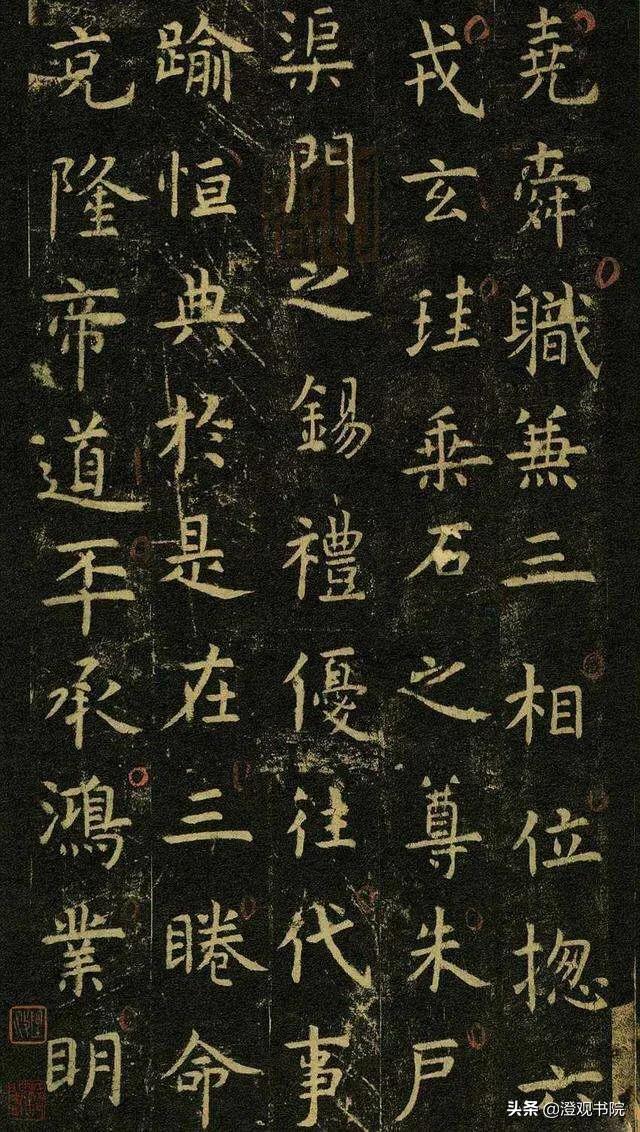 堯舜職兼三相位揔六
戎玄珪乗石之尊朱戶
渠門之錫禮優往代事
踰恒典於是在三睠命
克隆帝道丕承鴻業明
头条 @澄观书院